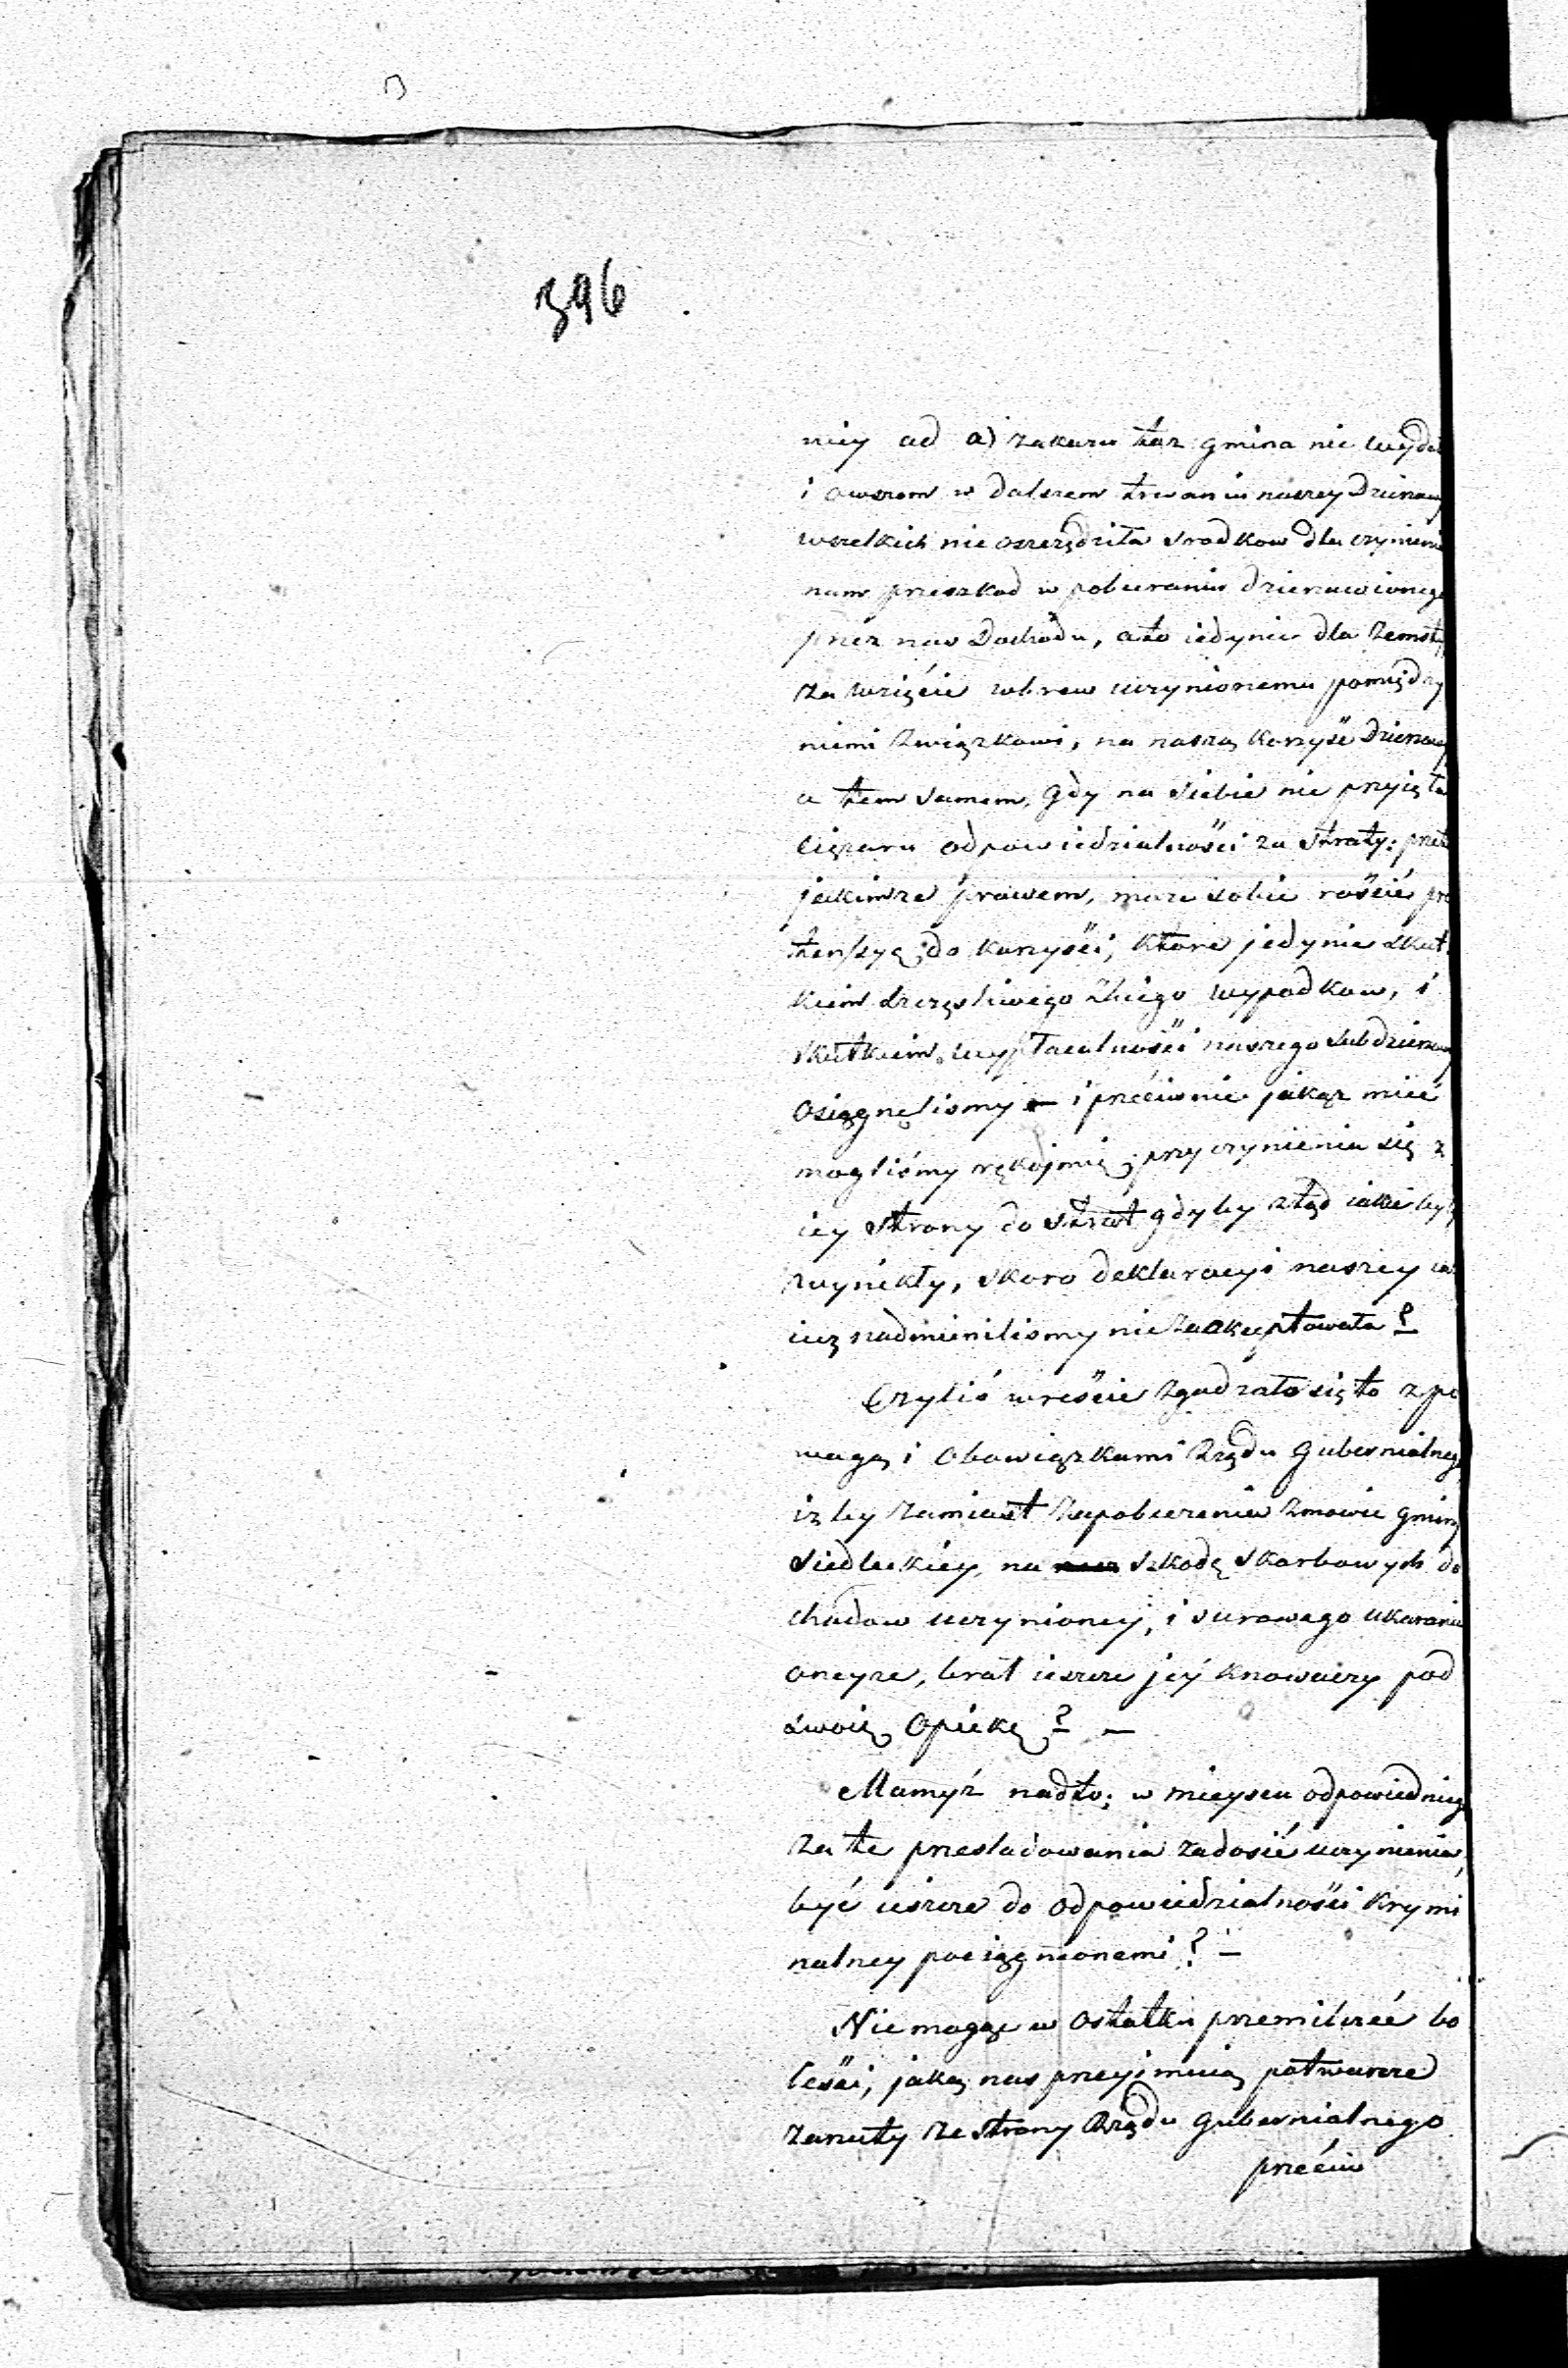 396
niey ad a) zakazu taz gmina nie wyda
i owszem w dalszem trwaniu naszey Dzierzaw
wszelkich nie oszczędziła srodkow dla czynieni
nam przeszkod w pobieraniu dzierzawionego
przez nas Dochodu, a to iedynie dla zemsty
za wzięcie wbrew uczynionemu pomiędzy
niemi związkowi, na naszą korzyść Dzierzawy
a tem samem, gdy na siebie nie przyięła
ciężaru odpowiedzialności za straty: prze
jakimze prawem, moze sobie rościć pre
tensyą do korzyści, ktore jedynie skut
kiem szczęśliwego zbiegu wypadkow, i
skutkiem wypłacalności naszego subdzierzaw
osiągnęlismy – i przeciwnie jakąz mieć
mogliśmy rękojmię, przyczynienia się z
iey strony do strat gdyby ztąd iakie były
wynikły, skoro deklaracyi naszey
iuz nadmienilismy nie zaakceptowała?
Czyliś wreście zgadzało się to z po
wagą i obowiązkami Rządu Gubernialneg
iz by zamiast zapobieżenia zmowie gminy
Siedleckiéy, na szkodę skarbowych do
chodow uczynioney, i surowego ukarania
oneyze, brał ieszcze jéy knowaczy pod
swoią Opiekę? –
Mamyż nadto; w mieyscu odpowiednieg
za te przesladowania zadosić uczynienia,
być ieszcze do odpowiedzialności krymi
nalney pociągnionemi? –
Nie mogąc w ostatku przemilczéć bo
leści, jaką nas przeyimuią potwarcze
zarzuty ze strony Rządu Gubernialnego
przéciw